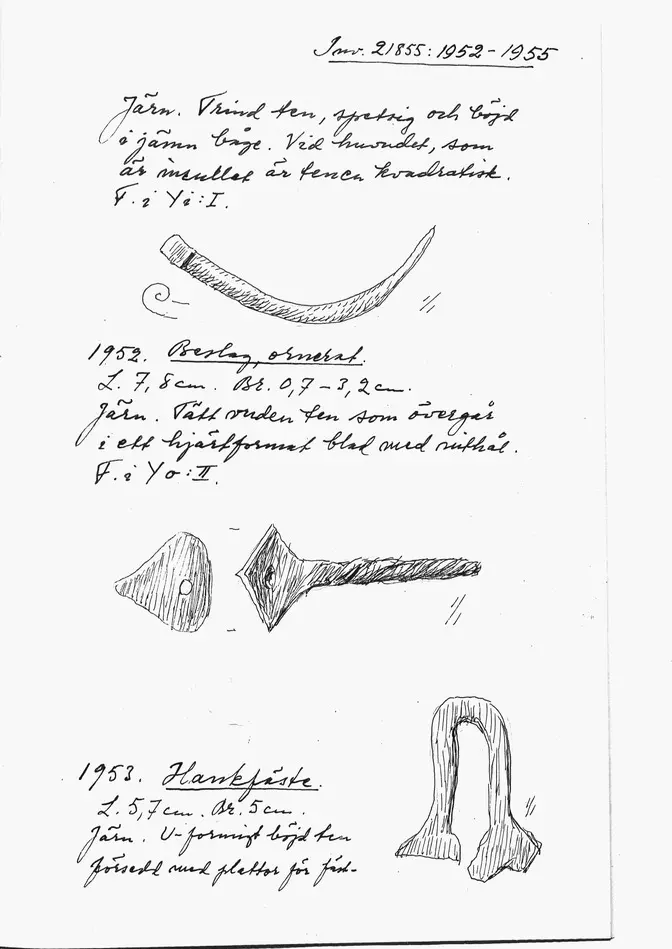 Inv. 21855: 1952-1955
Järn. Trind ten, spetsig och böjd
i jämn båge. Vid huvudet, som
är insullet är tenen kvadratisk.
F. i Yi: I.
1/1
1952. Beslag, ornerat.
L. 7,8 cm. Br. 0,7-3,2 cm.
Järn. Tätt vriden ten som övergår
i ett hjärtformat blad med nithål.
F. i Yo: II.
1/1
1953. Hankfäste.
L. 5,7 cm. Br. 5 cm.
Järn. U-formigt böjd ten
försedd med plattor för fäst-
1/1